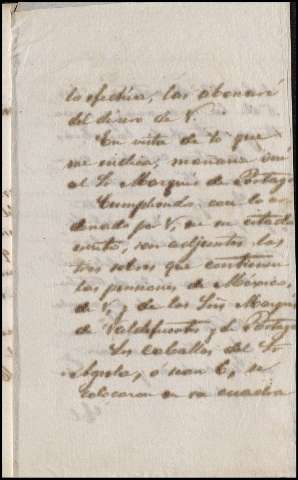 lo efectúa, las abonaré
del dinero de V.
En vista de lo que
me indica, mañana iré
al Sr Marqués de Portago
Cumpliendo con lo or
denado por V, en su citada
carta, son adjuntos los
tres sobres que contienen
las pensiones de México,
de V, y de los Sres Marque
de Valdefuentes y de Portago
Los caballos del Sr
Agrela, ó sean 6, se
colocaron en su cuadra